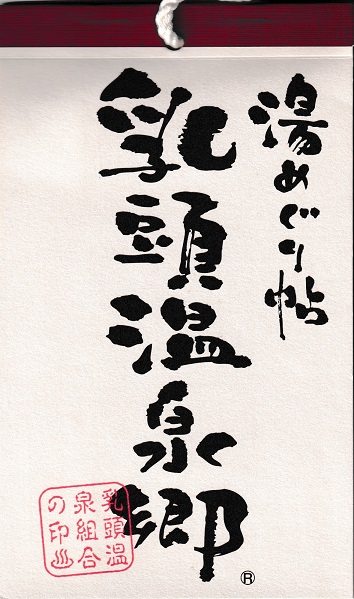 湯めぐり帖
乳頭温泉郷
®
乳頭温
泉組合
の印♨